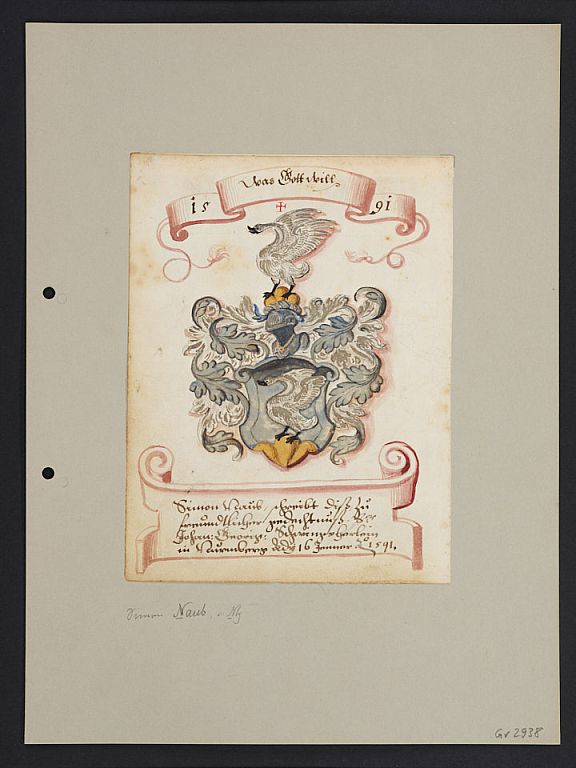 Was Gott will
15 91
Simon Naub, schreibt diß zu
freundtlicher gedechtnuß
Johan: Georg: Schwingsherlein
in Nurmberg den 16 Jenner A 1591.
Simon Naub, Nbg
Gr 2938